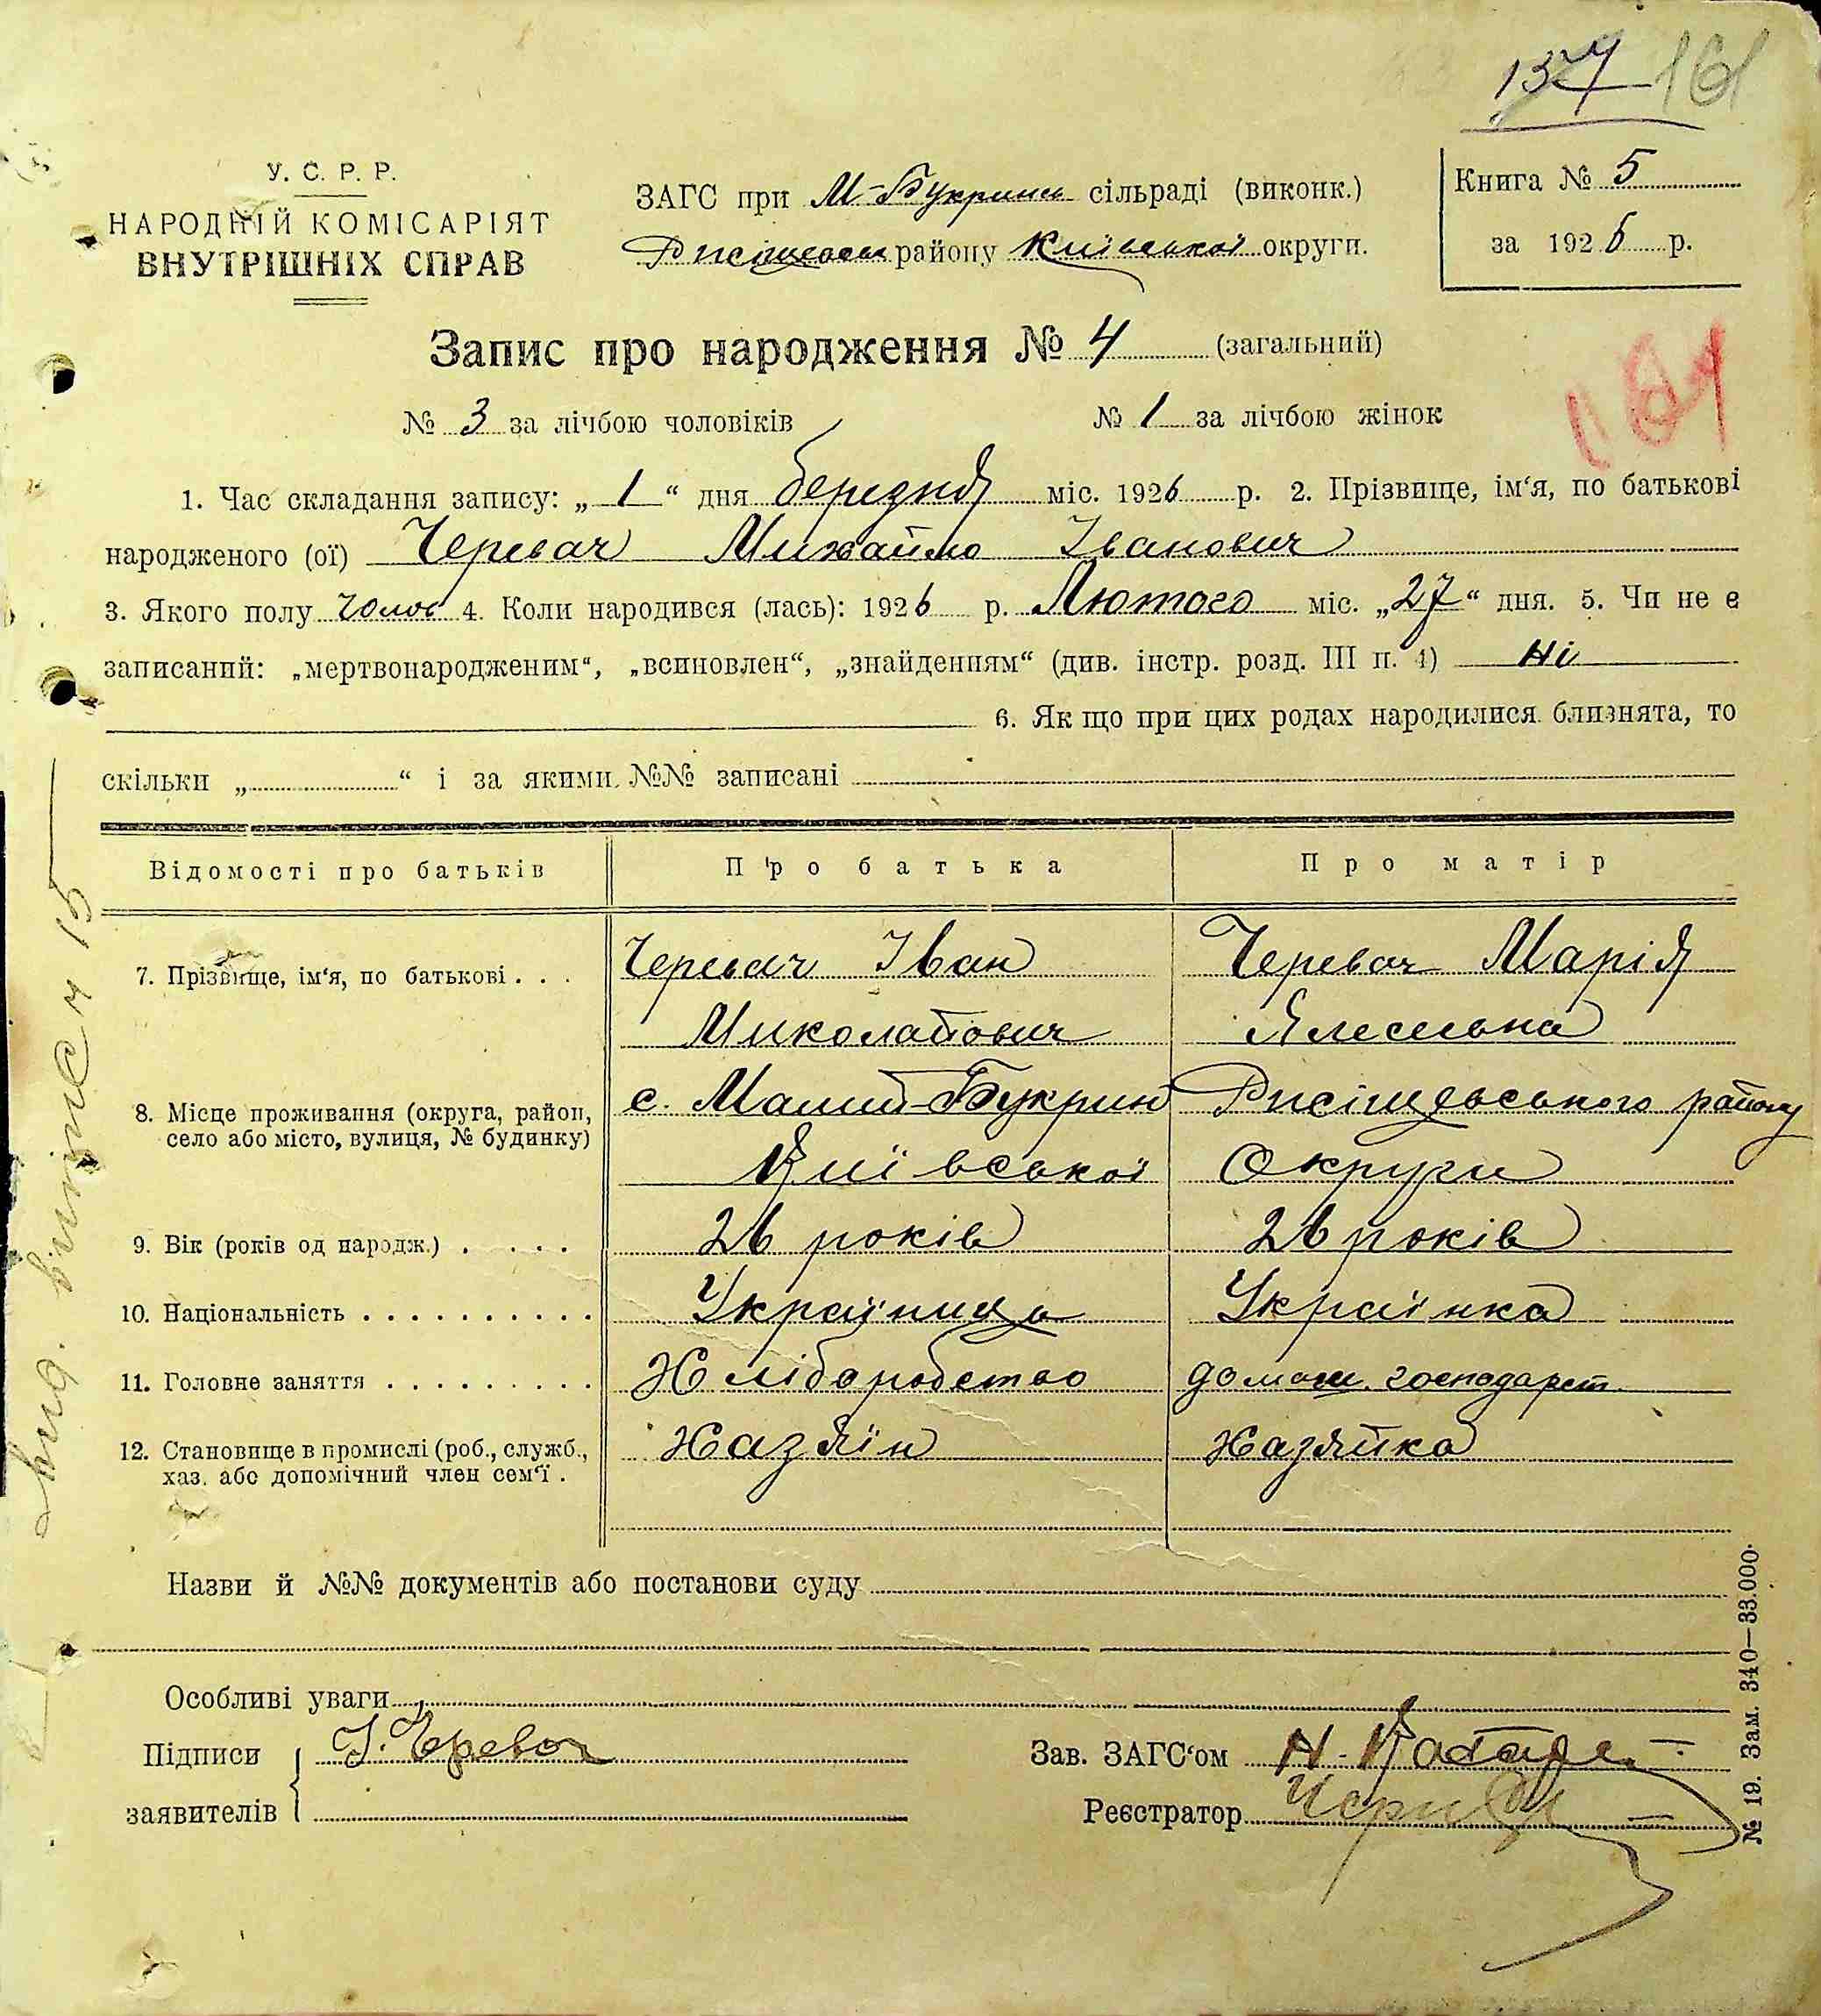 137 161
У. С. Р. Р.
НАРОДНІЙ КОМІСАРІЯТ
ВНУТРІШНІХ СПРАВ
ЗАГС при М-Букринс сільраді (виконк.)
району Київської округи.
Книга № 5
за 1926 р.
Запис про народження № 4 (загальний)
161
№ 3 за лічбою чоловіків № 1 за лічбою жінок
1. Час складання запису: „1“ дня березня міс. 1926 р. 2. Прізвище, ім‘я, по батькові
народженого (ої) Черевач Михайло Іванович
3. Якого полу чолов 4. Коли народився (лась): 1926 р. Лютого міс. „27“ дня. 5. Чи не є
записаний: „мертвонародженим“, „всиновлен“, „знайденням“ (див. інстр. розд. III п. 4) Ні
6. Як що при цих родах народилися близнята, то
скільки „ “ і за якими №№ записані
Відомості про батьків Про батька Про матір
7. Прізвище, ім‘я, по батькові . . . Черевач Іван Черевач Марія
Миколайович
8. Місце проживання (округа, район, с. Малий-Букрин Ржіщевського району
село або місто, вулиця, № будинку)
Київської Округи
9. Вік (років од народж.) . . . . . 26 років 26 років
10. Національність . . . . . . . . . . Українець Українка
11. Головне заняття . . . . . . . . . Хліборобство домаш. господарст.
12. Становище в промислі (роб., служб., Хазяїн Хазяйка
хаз. або допомічний член сем‘ї .
Назви й №№ документів або постанови суду
Особливі уваги
Підписи І. Черевач
заявителів
Зав. ЗАГС‘ом
Реєстратор
№ 19. Зам. 340—33.000.